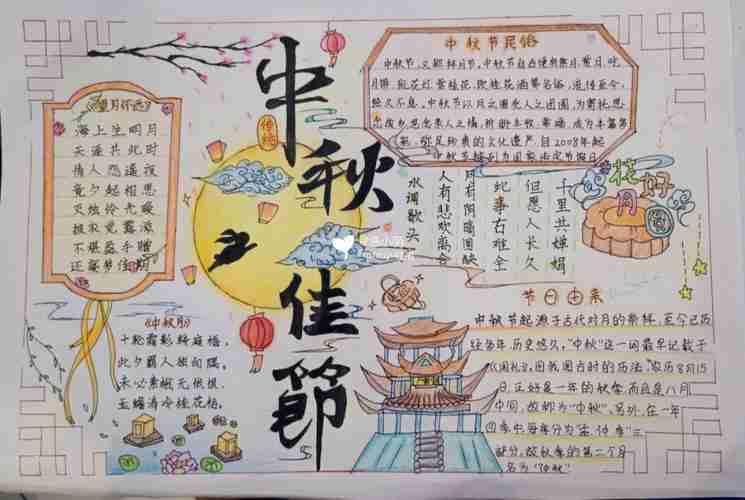 中秋佳節
传统
《望月怀远》
海上生明月
天涯共此时
情人怨遥夜
竟夕起相思
灭烛怜光暖
披衣觉露滋
不堪盈手赠
还寝梦佳期
《中秋月》
十轮霜影转庭梧
此夕羁人独向隅
未必素娥无怅恨
玉蟾清冷桂花孤
中秋节民俗
中秋节,又称拜月节,中秋节自古便有祭月、赏月、吃
月饼、玩花灯、赏桂花、饮桂花酒等民俗,流传至今,
经久不息。中秋节以月之圆兆人之团圆,为寄托思
念故乡,思念亲人之情,祈盼丰收、幸福,成为丰富多
彩、弥足珍贵的文化遗产。自2008年起
中秋节被列为国家法定节假日
水调歌头
人有悲欢离合
月有阴晴圆缺
此事古难全
但愿人长久
千里共婵娟
花好
月圆
节日由来
中秋节起源于古代对月的祭拜,至今已历
经数年,历史悠久,“中秋”这一词最早记载于
《周礼》,因我国古时的历法,农历8月15
日,正好是一年的秋季,而且是八月
中间,故称为“中秋”,另外,在一年
四季中,每季分为孟、仲、季三
部分,故秋季的第二个月
名为“仲秋”